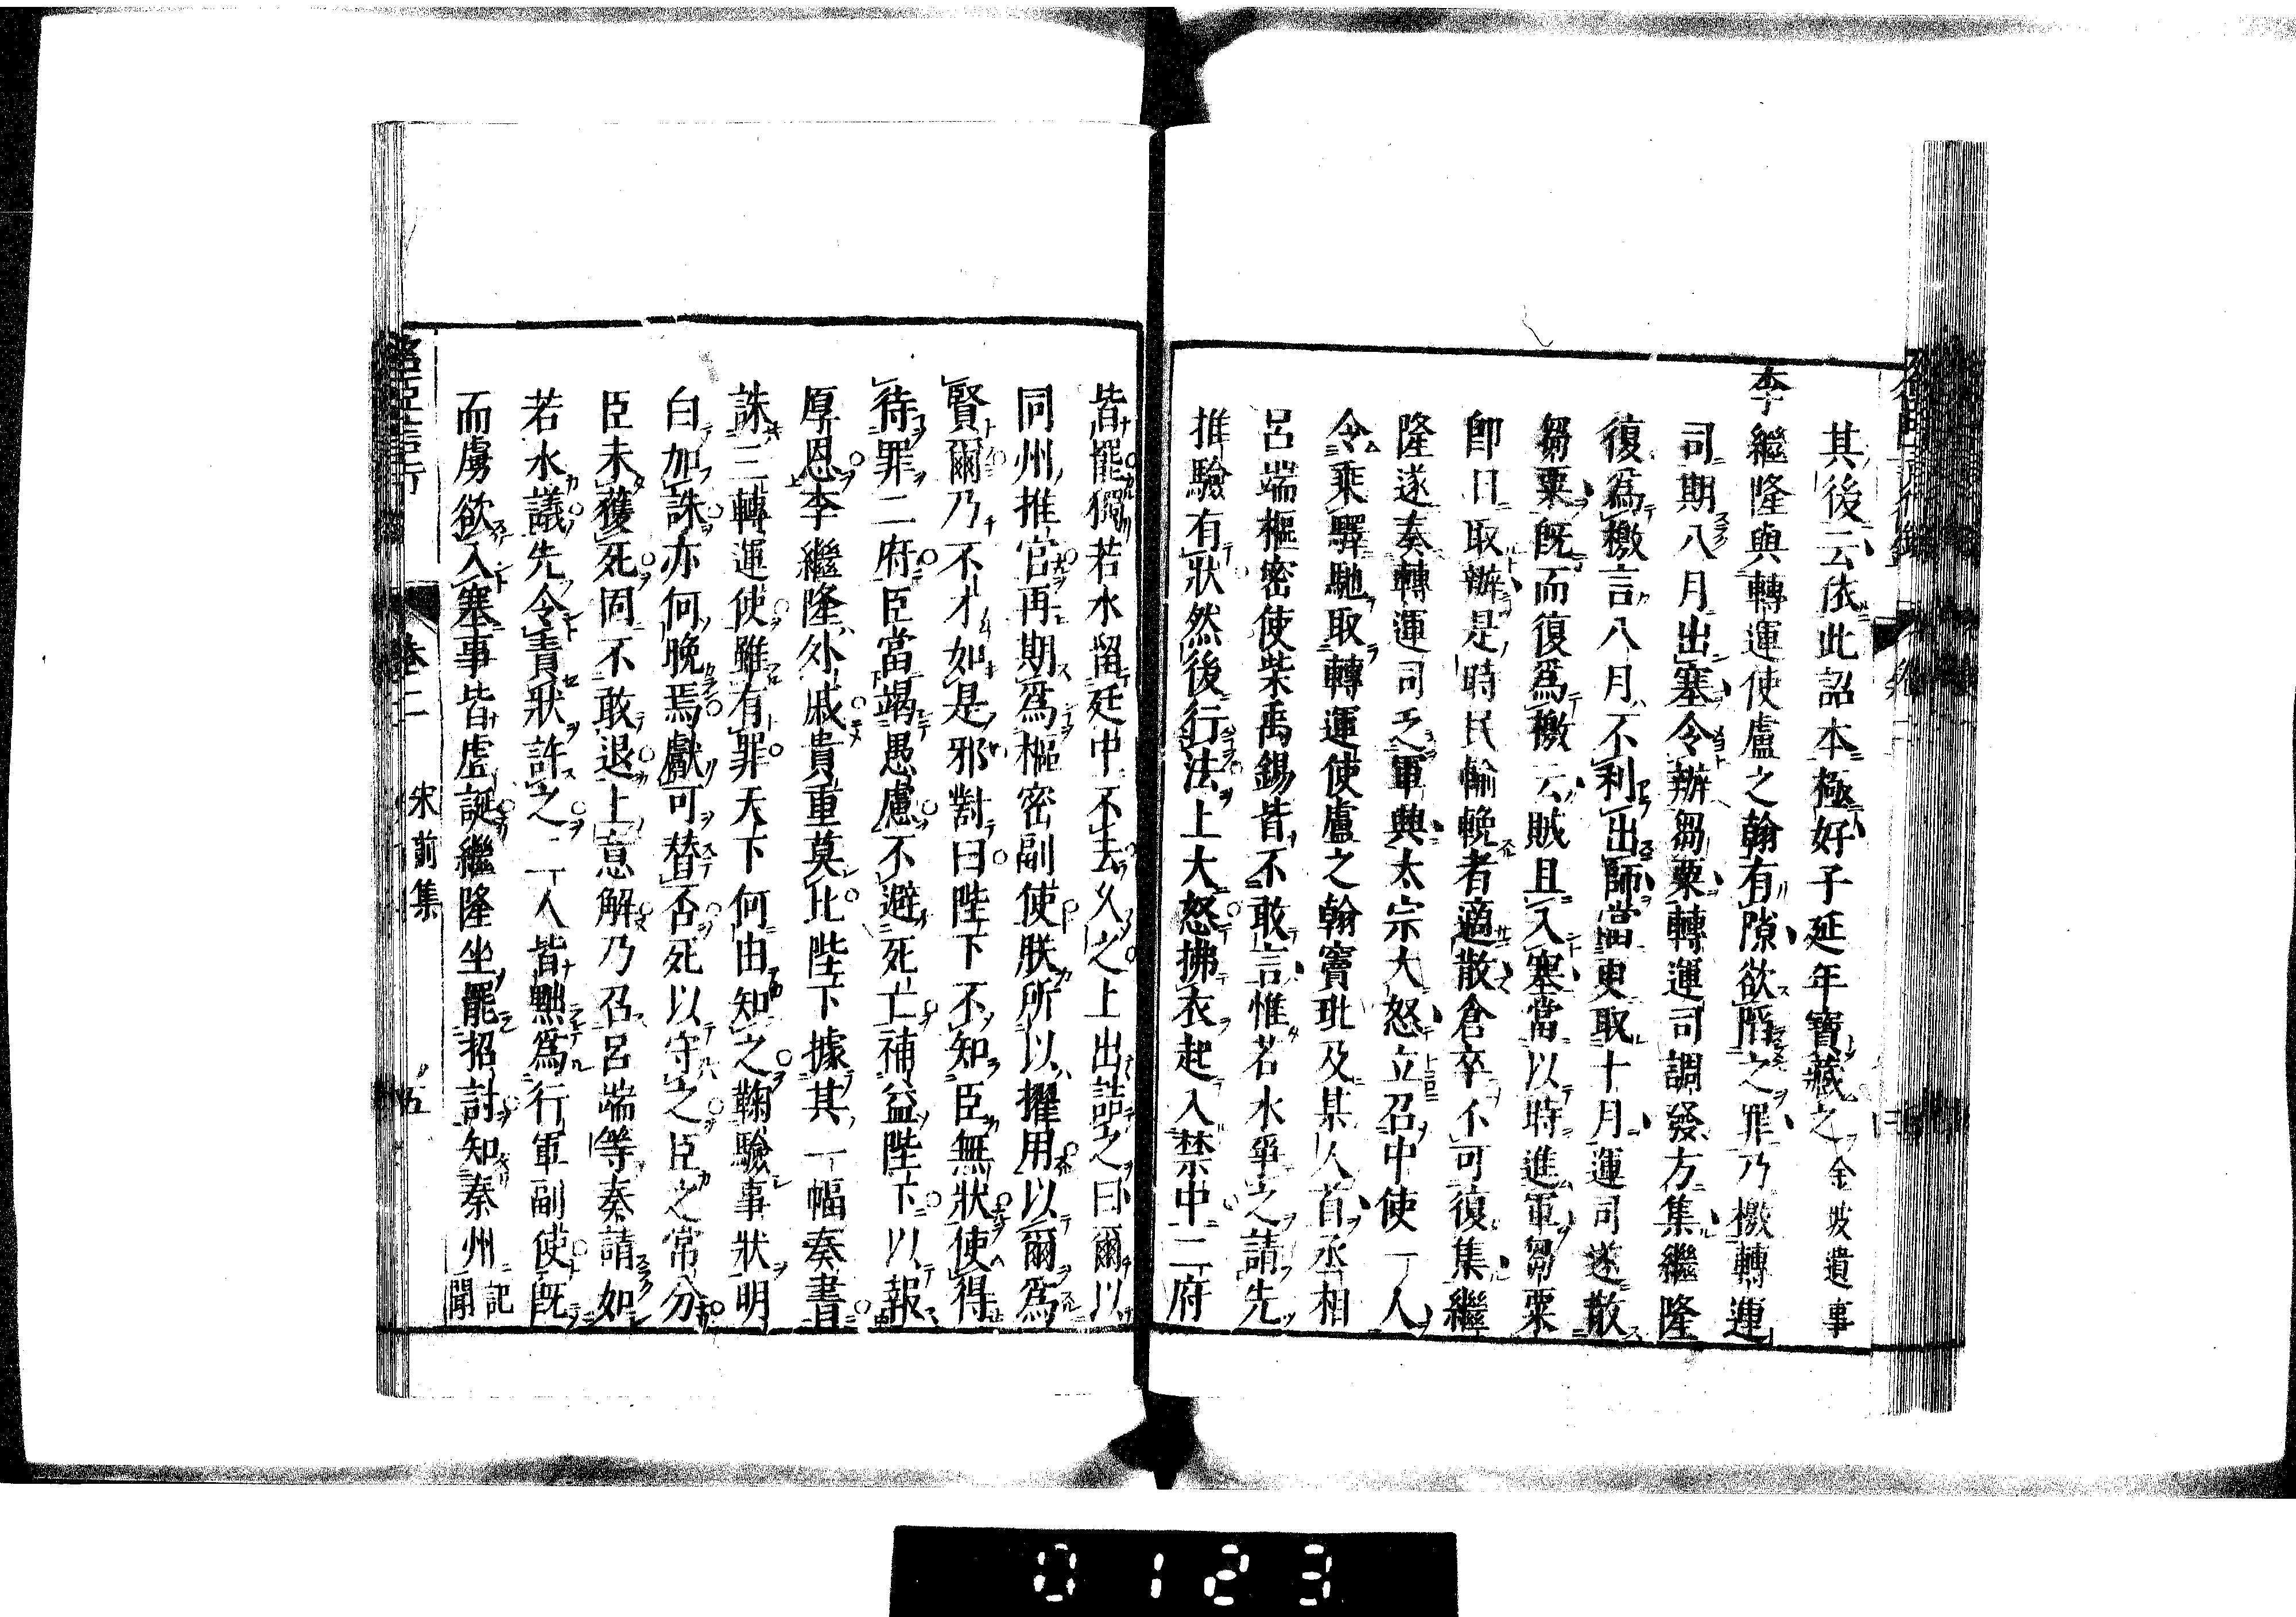 其後云依此詔本極好子延年寶藏之金坡遺事
李繼隆與轉運使盧之翰有隙欲陷之罪乃檄轉運
司期八月出塞令辦芻粟轉運司調發方集繼隆
復爲檄言八月不利出師當更取十月運司遂散
芻粟旣而復爲檄云賊且入塞當以時進軍芻粟
卽日取辦是時民輸輓者適散倉卒不可復集繼
隆遂奏轉運司乏軍興太宗大怒立召中使一人
令乘驛馳取轉運使盧之翰竇玭及某人首丞相
呂端樞密使柴禹錫皆不敢言惟若水爭之請先
推驗有狀然後行法上大怒拂衣起入禁中二府
皆罷獨若水留廷中不去久之上出詰之曰爾以
同州推官再期爲樞密副使朕所以擢用以爾爲
賢爾乃不才如是邪對曰陛下不知臣無狀使得
待罪二府臣當竭愚慮不避死亡補益陛下以報
厚恩李繼隆外戚貴重莫比陛下據其一幅奏書
誅三轉運使雖有罪天下何由知之鞠驗事狀明
白加誅亦何晚焉獻可替否死以守之臣之常分
臣未獲死固不敢退上意解乃召呂端等奏請如
若水議先令責狀許之二人皆黜爲行軍副使旣
而虜欲入塞事皆虛誕繼隆坐罷招討知秦州記聞
卷二 宋前集 五